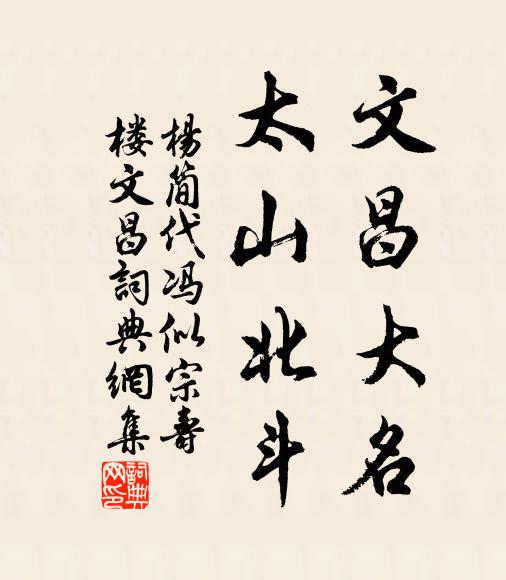 文昌大名
太山北斗
杨简代冯似宗寿
楼文昌詞典網集
詞典网印